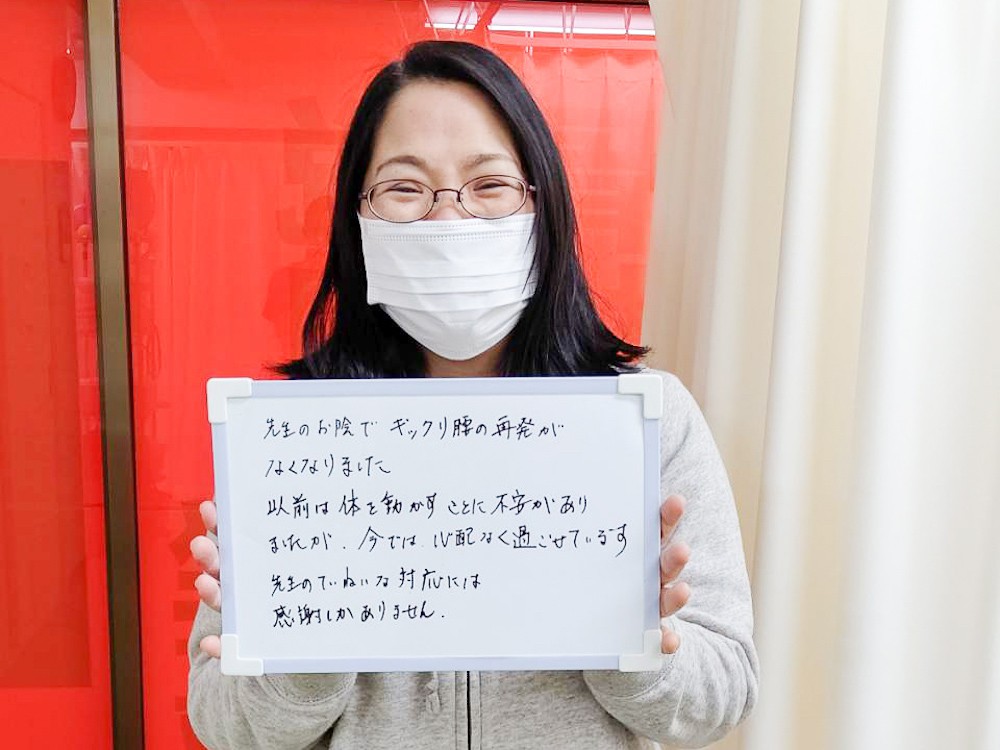 先生のお陰で ギックリ腰の再発が
なくなりました
以前は体を動かすことに不安があり
ましたが、今では、心配なく過ごせています
先生のていねいな対応には
感謝しかありません.